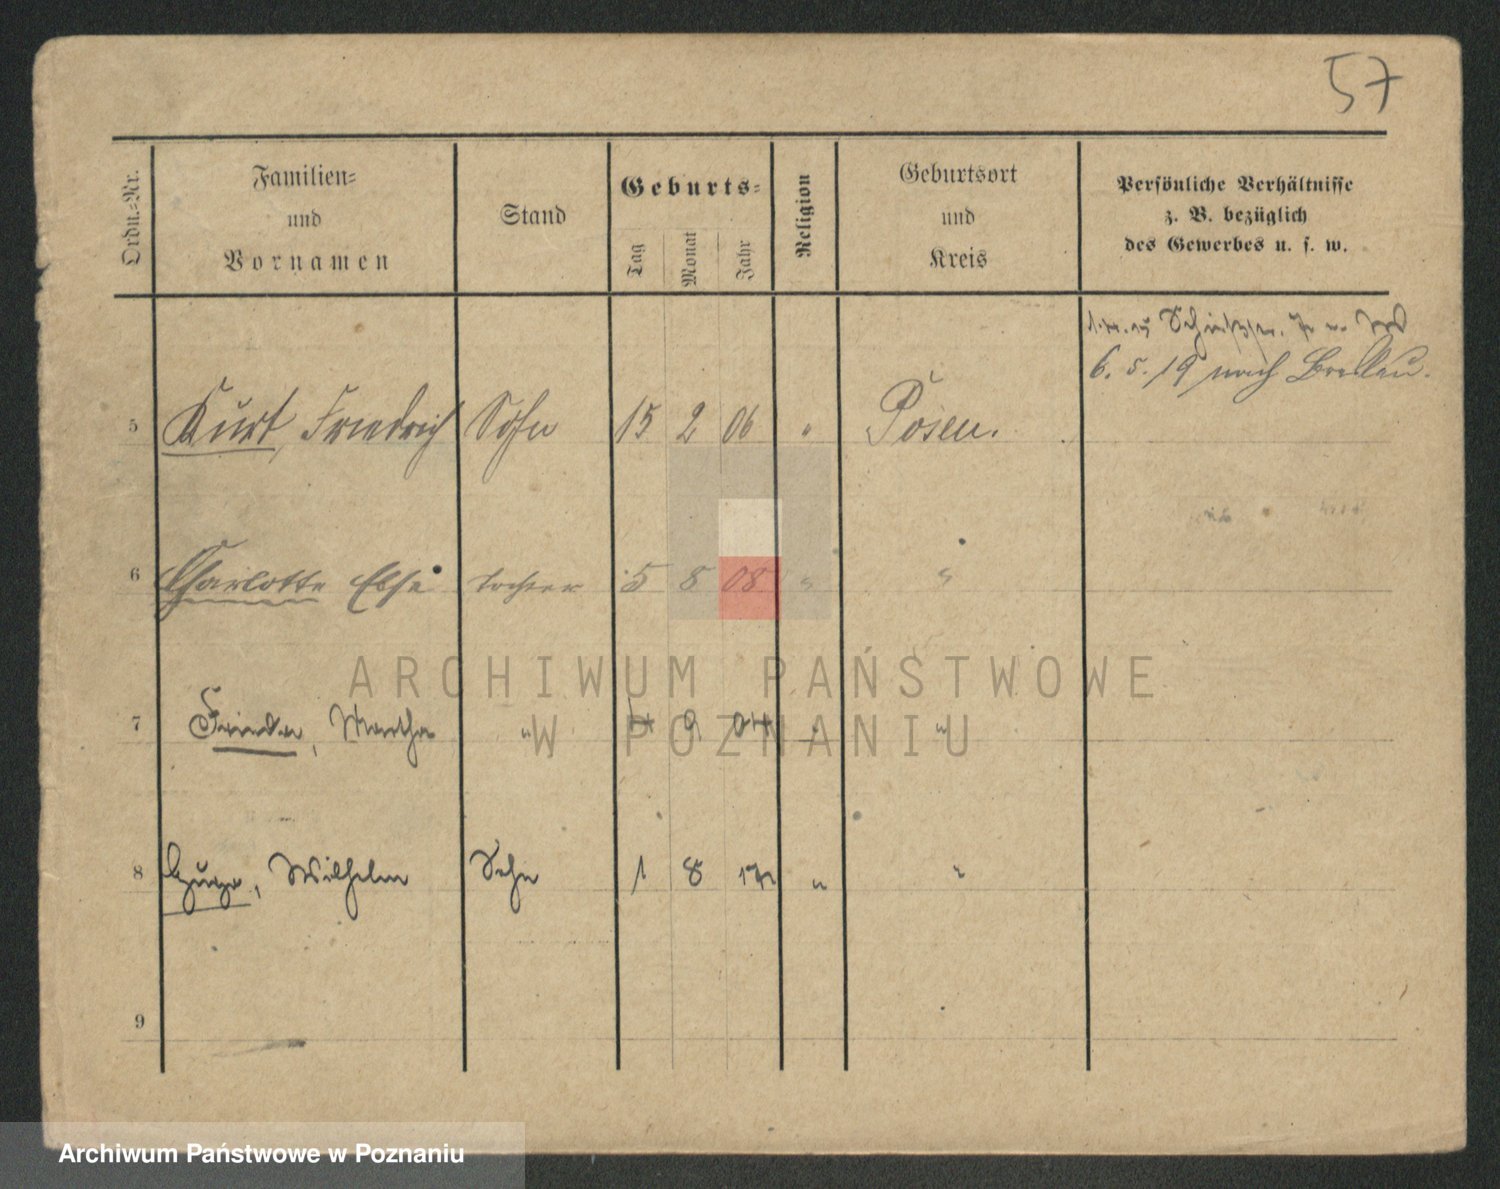 57
Ordn.-Nr.
Familien-
und
Vornamen
Stand
Geburts-
Tag
Monat
Jahr
Religion
Geburtsort
und
Kreis
Persönliche Verhältnisse
z. B. bezüglich
des Gewerbes u. s. w.
6. 5. 19 nach Breslau.
5 Kurt, Friedrich Sohn 15 2 06 " Posen.
6 Charlotte Else Tochter 5 8 08 " "
7 Frieda, Martha " 9 " "
8 Hugo, Wilhelm Sohn 1 8 " "
9
ARCHIWUM PAŃSTWOWE
W POZNANIU
Archiwum Państwowe w Poznaniu